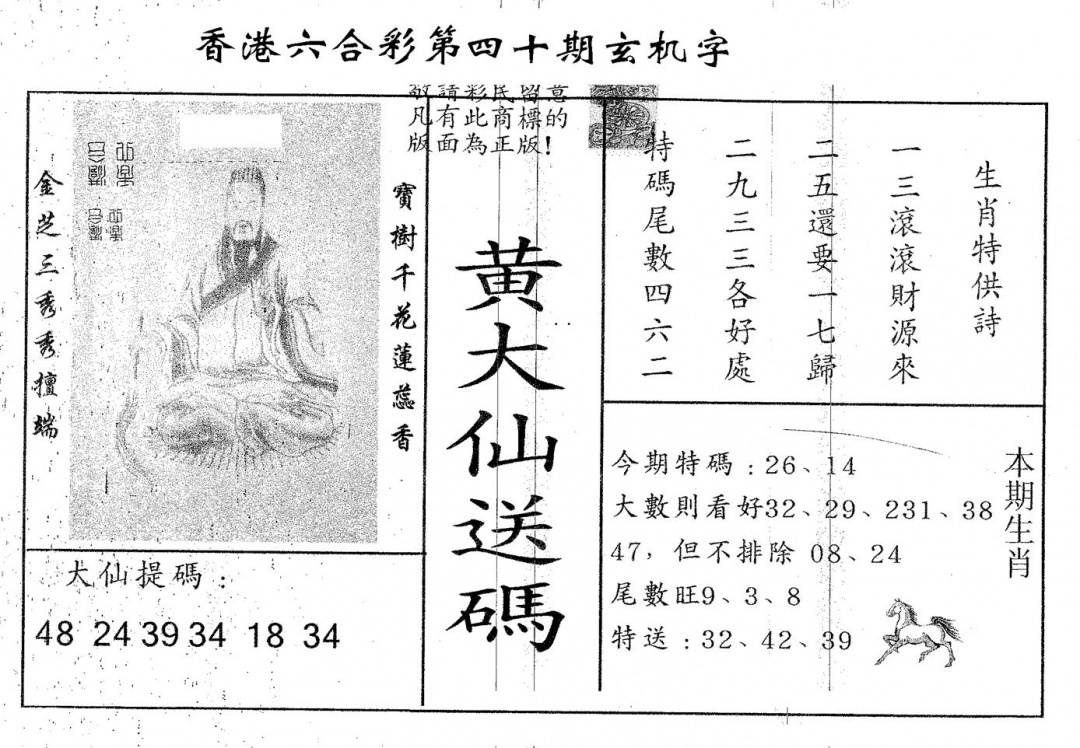 香港六合彩第四十期玄机字
敬請彩民留意
凡有此商標的
版面為正版！
金芝三秀秀擅端
寶樹千花蓮蕊香
黄大仙送碼
生肖特供詩
一三滾滾財源來
二五還要一七歸
二九三三各好處
特碼尾數四六二
大仙提碼：
48 24 39 34 18 34
本期生肖
今期特碼：26、14
大數則看好32、29、231、38
47，但不排除 08、24
尾數旺9、3、8
特送：32、42、39